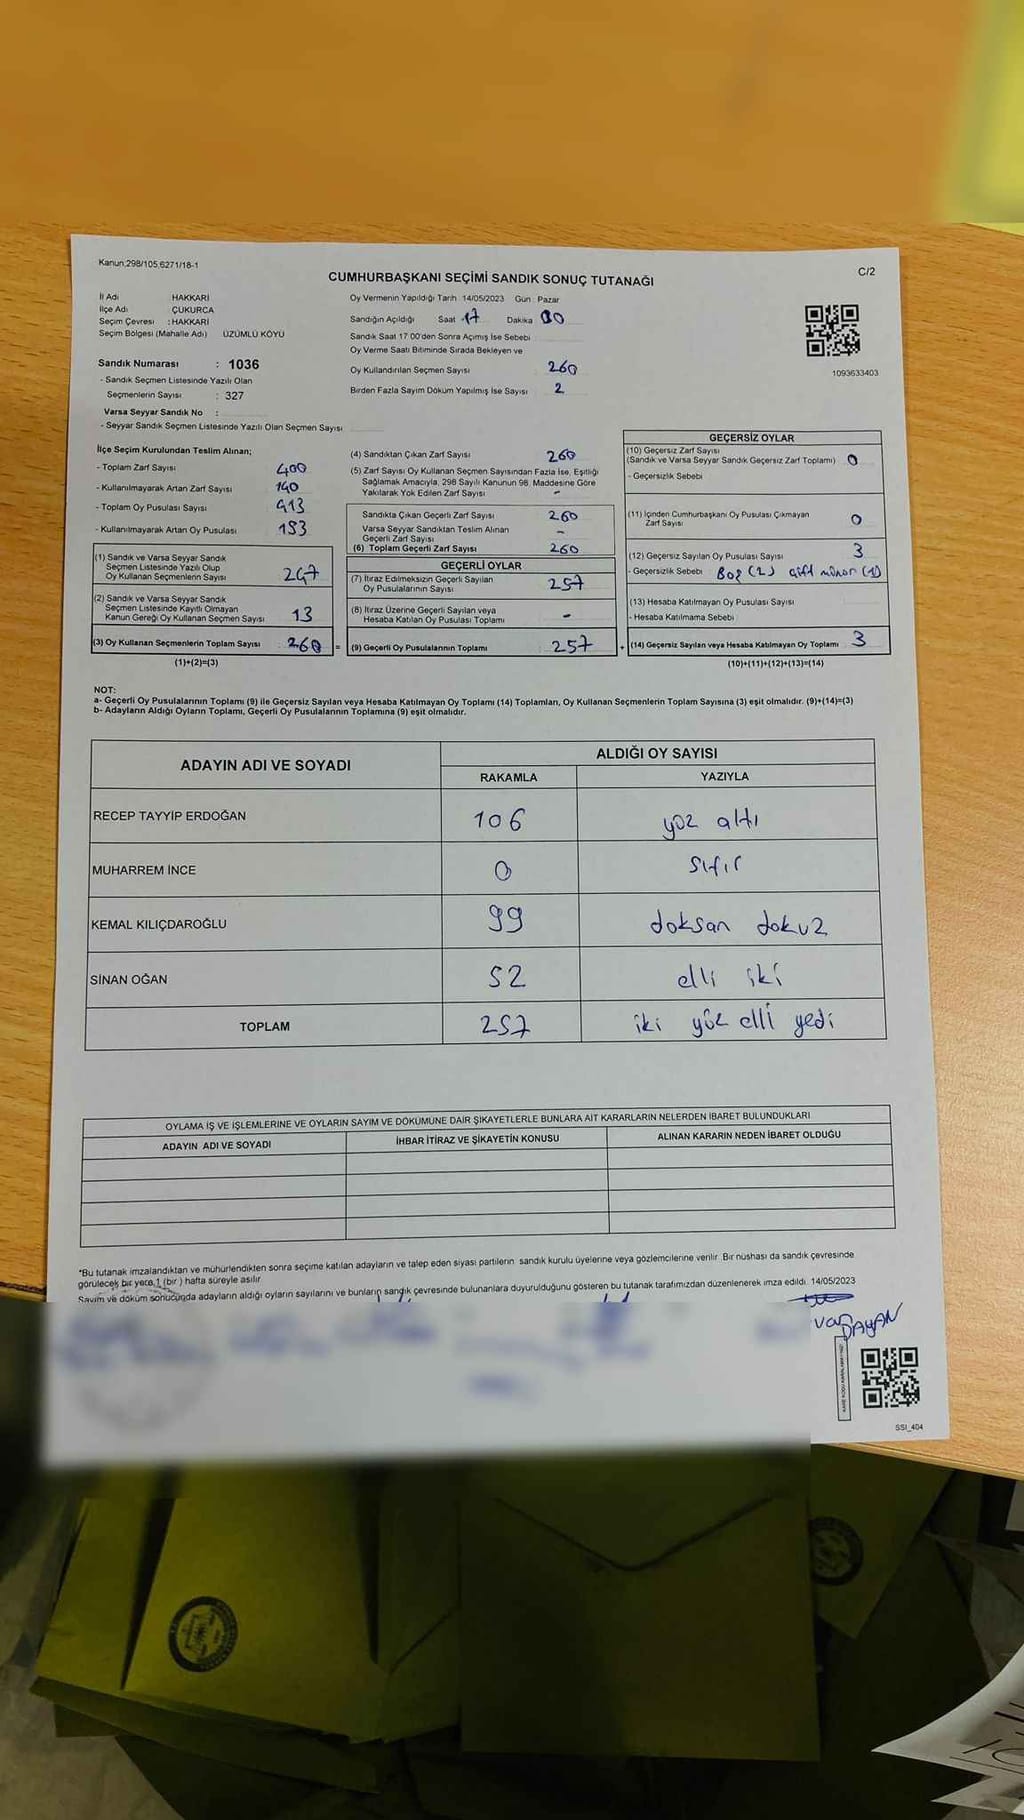 Kanun;298/105,6271/18-1
C/2
CUMHURBAŞKANI SEÇİMİ SANDIK SONUÇ TUTANAĞI
İl Adı HAKKARİ
İlçe Adı ÇUKURCA
Seçim Çevresi : HAKKARİ
Seçim Bölgesi (Mahalle Adı) ÜZÜMLÜ KÖYÜ
Sandık Numarası : 1036
- Sandık Seçmen Listesinde Yazılı Olan
Seçmenlerin Sayısı : 327
Varsa Seyyar Sandık No :
- Seyyar Sandık Seçmen Listesinde Yazılı Olan Seçmen Sayısı
Oy Vermenin Yapıldığı Tarih 14/05/2023 Gün : Pazar
Sandığın Açıldığı Saat 17 Dakika 00
Sandık Saat 17 00'den Sonra Açımış İse Sebebi
Oy Verme Saati Bitiminde Sırada Bekleyen ve
Oy Kullandırılan Seçmen Sayısı 260
Birden Fazla Sayım Döküm Yapılmış İse Sayısı 2
1093633403
İlçe Seçim Kurulundan Teslim Alınan;
- Toplam Zarf Sayısı 400
- Kullanılmayarak Artan Zarf Sayısı 140
- Toplam Oy Pusulası Sayısı 413
- Kullanılmayarak Artan Oy Pusulası 153
(1) Sandık ve Varsa Seyyar Sandık
Seçmen Listesinde Yazılı Olup
Oy Kullanan Seçmenlerin Sayısı 247
(2) Sandık ve Varsa Seyyar Sandık
Seçmen Listesinde Kayıtlı Olmayan
Kanun Gereği Oy Kullanan Seçmen Sayısı 13
(3) Oy Kullanan Seçmenlerin Toplam Sayısı 260 =
(1)+(2)=(3)
(4) Sandıktan Çıkan Zarf Sayısı 260
(5) Zarf Sayısı Oy Kullanan Seçmen Sayısından Fazla İse, Eşitliği
Sağlamak Amacıyla, 298 Sayılı Kanunun 98. Maddesine Göre
Yakılarak Yok Edilen Zarf Sayısı -
Sandıkta Çıkan Geçerli Zarf Sayısı 260
Varsa Seyyar Sandıktan Teslim Alınan
Geçerli Zarf Sayısı -
(6) Toplam Geçerli Zarf Sayısı 260
GEÇERLİ OYLAR
(7) İtiraz Edilmeksizin Geçerli Sayılan
Oy Pusulalarının Sayısı 257
(8) İtiraz Üzerine Geçerli Sayılan veya
Hesaba Katılan Oy Pusulası Toplamı -
(9) Geçerli Oy Pusulalarının Toplamı 257 +
GEÇERSİZ OYLAR
(10) Geçersiz Zarf Sayısı
(Sandık ve Varsa Seyyar Sandık Geçersiz Zarf Toplamı) 0
- Geçersizlik Sebebi
(11) İçinden Cumhurbaşkanı Oy Pusulası Çıkmayan
Zarf Sayısı 0
(12) Geçersiz Sayılan Oy Pusulası Sayısı 3
- Geçersizlik Sebebi Boş (2) çift mühür (1)
(13) Hesaba Katılmayan Oy Pusulası Sayısı
- Hesaba Katılmama Sebebi
(14) Geçersiz Sayılan veya Hesaba Katılmayan Oy Toplamı 3
(10)+(11)+(12)+(13)=(14)
NOT:
a- Geçerli Oy Pusulalarının Toplamı (9) ile Geçersiz Sayılan veya Hesaba Katılmayan Oy Toplamı (14) Toplamları, Oy Kullanan Seçmenlerin Toplam Sayısına (3) eşit olmalıdır. (9)+(14)=(3)
b- Adayların Aldığı Oyların Toplamı, Geçerli Oy Pusulalarının Toplamına (9) eşit olmalıdır.
ADAYIN ADI VE SOYADI ALDIĞI OY SAYISI
RAKAMLA YAZIYLA
RECEP TAYYİP ERDOĞAN 106 yüz altı
MUHARREM İNCE 0 sıfır
KEMAL KILIÇDAROĞLU 99 doksan dokuz
SİNAN OĞAN 52 elli iki
TOPLAM 257 iki yüz elli yedi
OYLAMA İŞ VE İŞLEMLERİNE VE OYLARIN SAYIM VE DÖKÜMÜNE DAİR ŞİKAYETLERLE BUNLARA AİT KARARLARIN NELERDEN İBARET BULUNDUKLARI
ADAYIN ADI VE SOYADI İHBAR İTİRAZ VE ŞİKAYETİN KONUSU ALINAN KARARIN NEDEN İBARET OLDUĞU
*Bu tutanak imzalandıktan ve mühürlendikten sonra seçime katılan adayların ve talep eden siyasi partilerin sandık kurulu üyelerine veya gözlemcilerine verilir. Bir nüshası da sandık çevresinde
görülecek bir yere 1 (bir) hafta süreyle asılır.
Sayım ve döküm sonucunda adayların aldığı oyların sayılarını ve bunların sandık çevresinde bulunanlara duyurulduğunu gösteren bu tutanak tarafımızdan düzenlenerek imza edildi. 14/05/2023
DAYAN
SSI_404